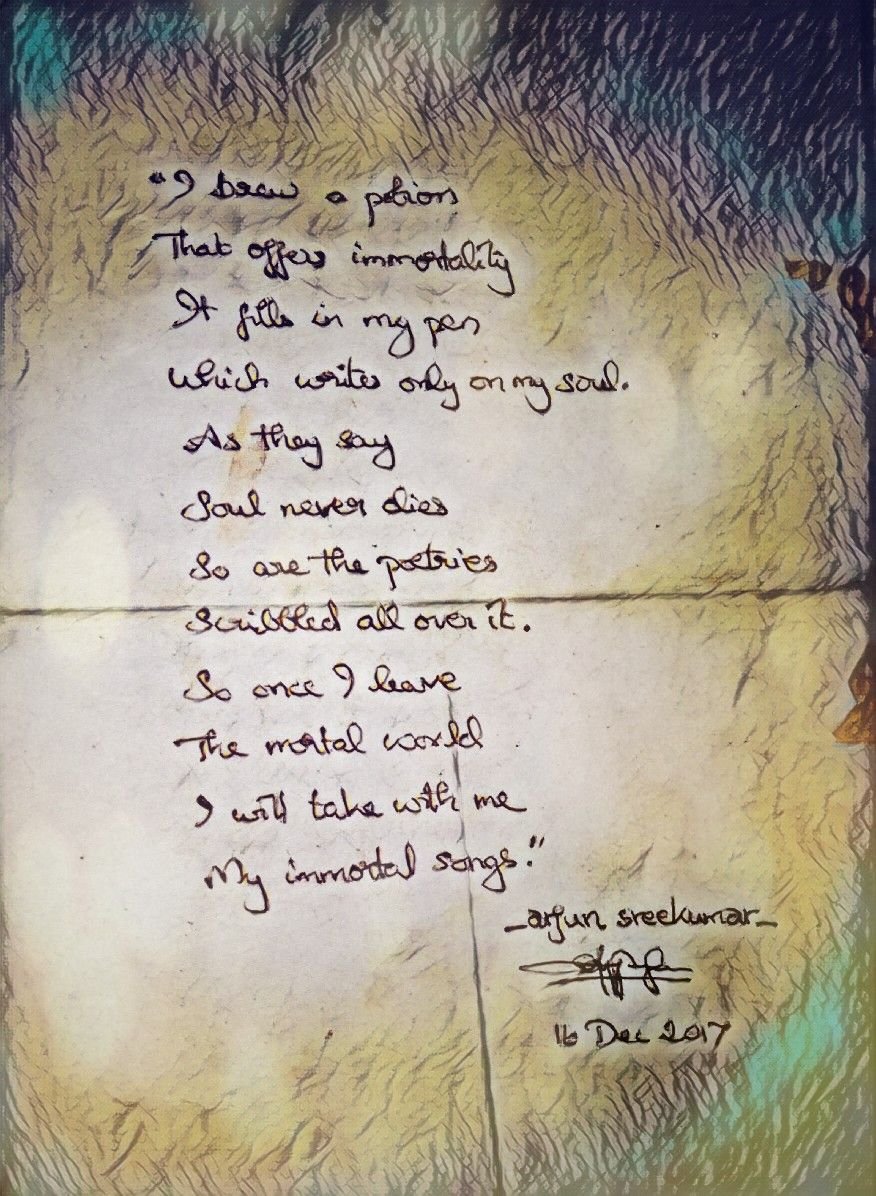 "I brew a potion
That offers immortality
It fills in my pen
Which writes only on my soul.
As they say
Soul never dies
So are the poetries
Scribbled all over it.
So once I leave
The mortal world
I will take with me
My immortal songs."
_arjun sreekumar_
16 Dec 2017